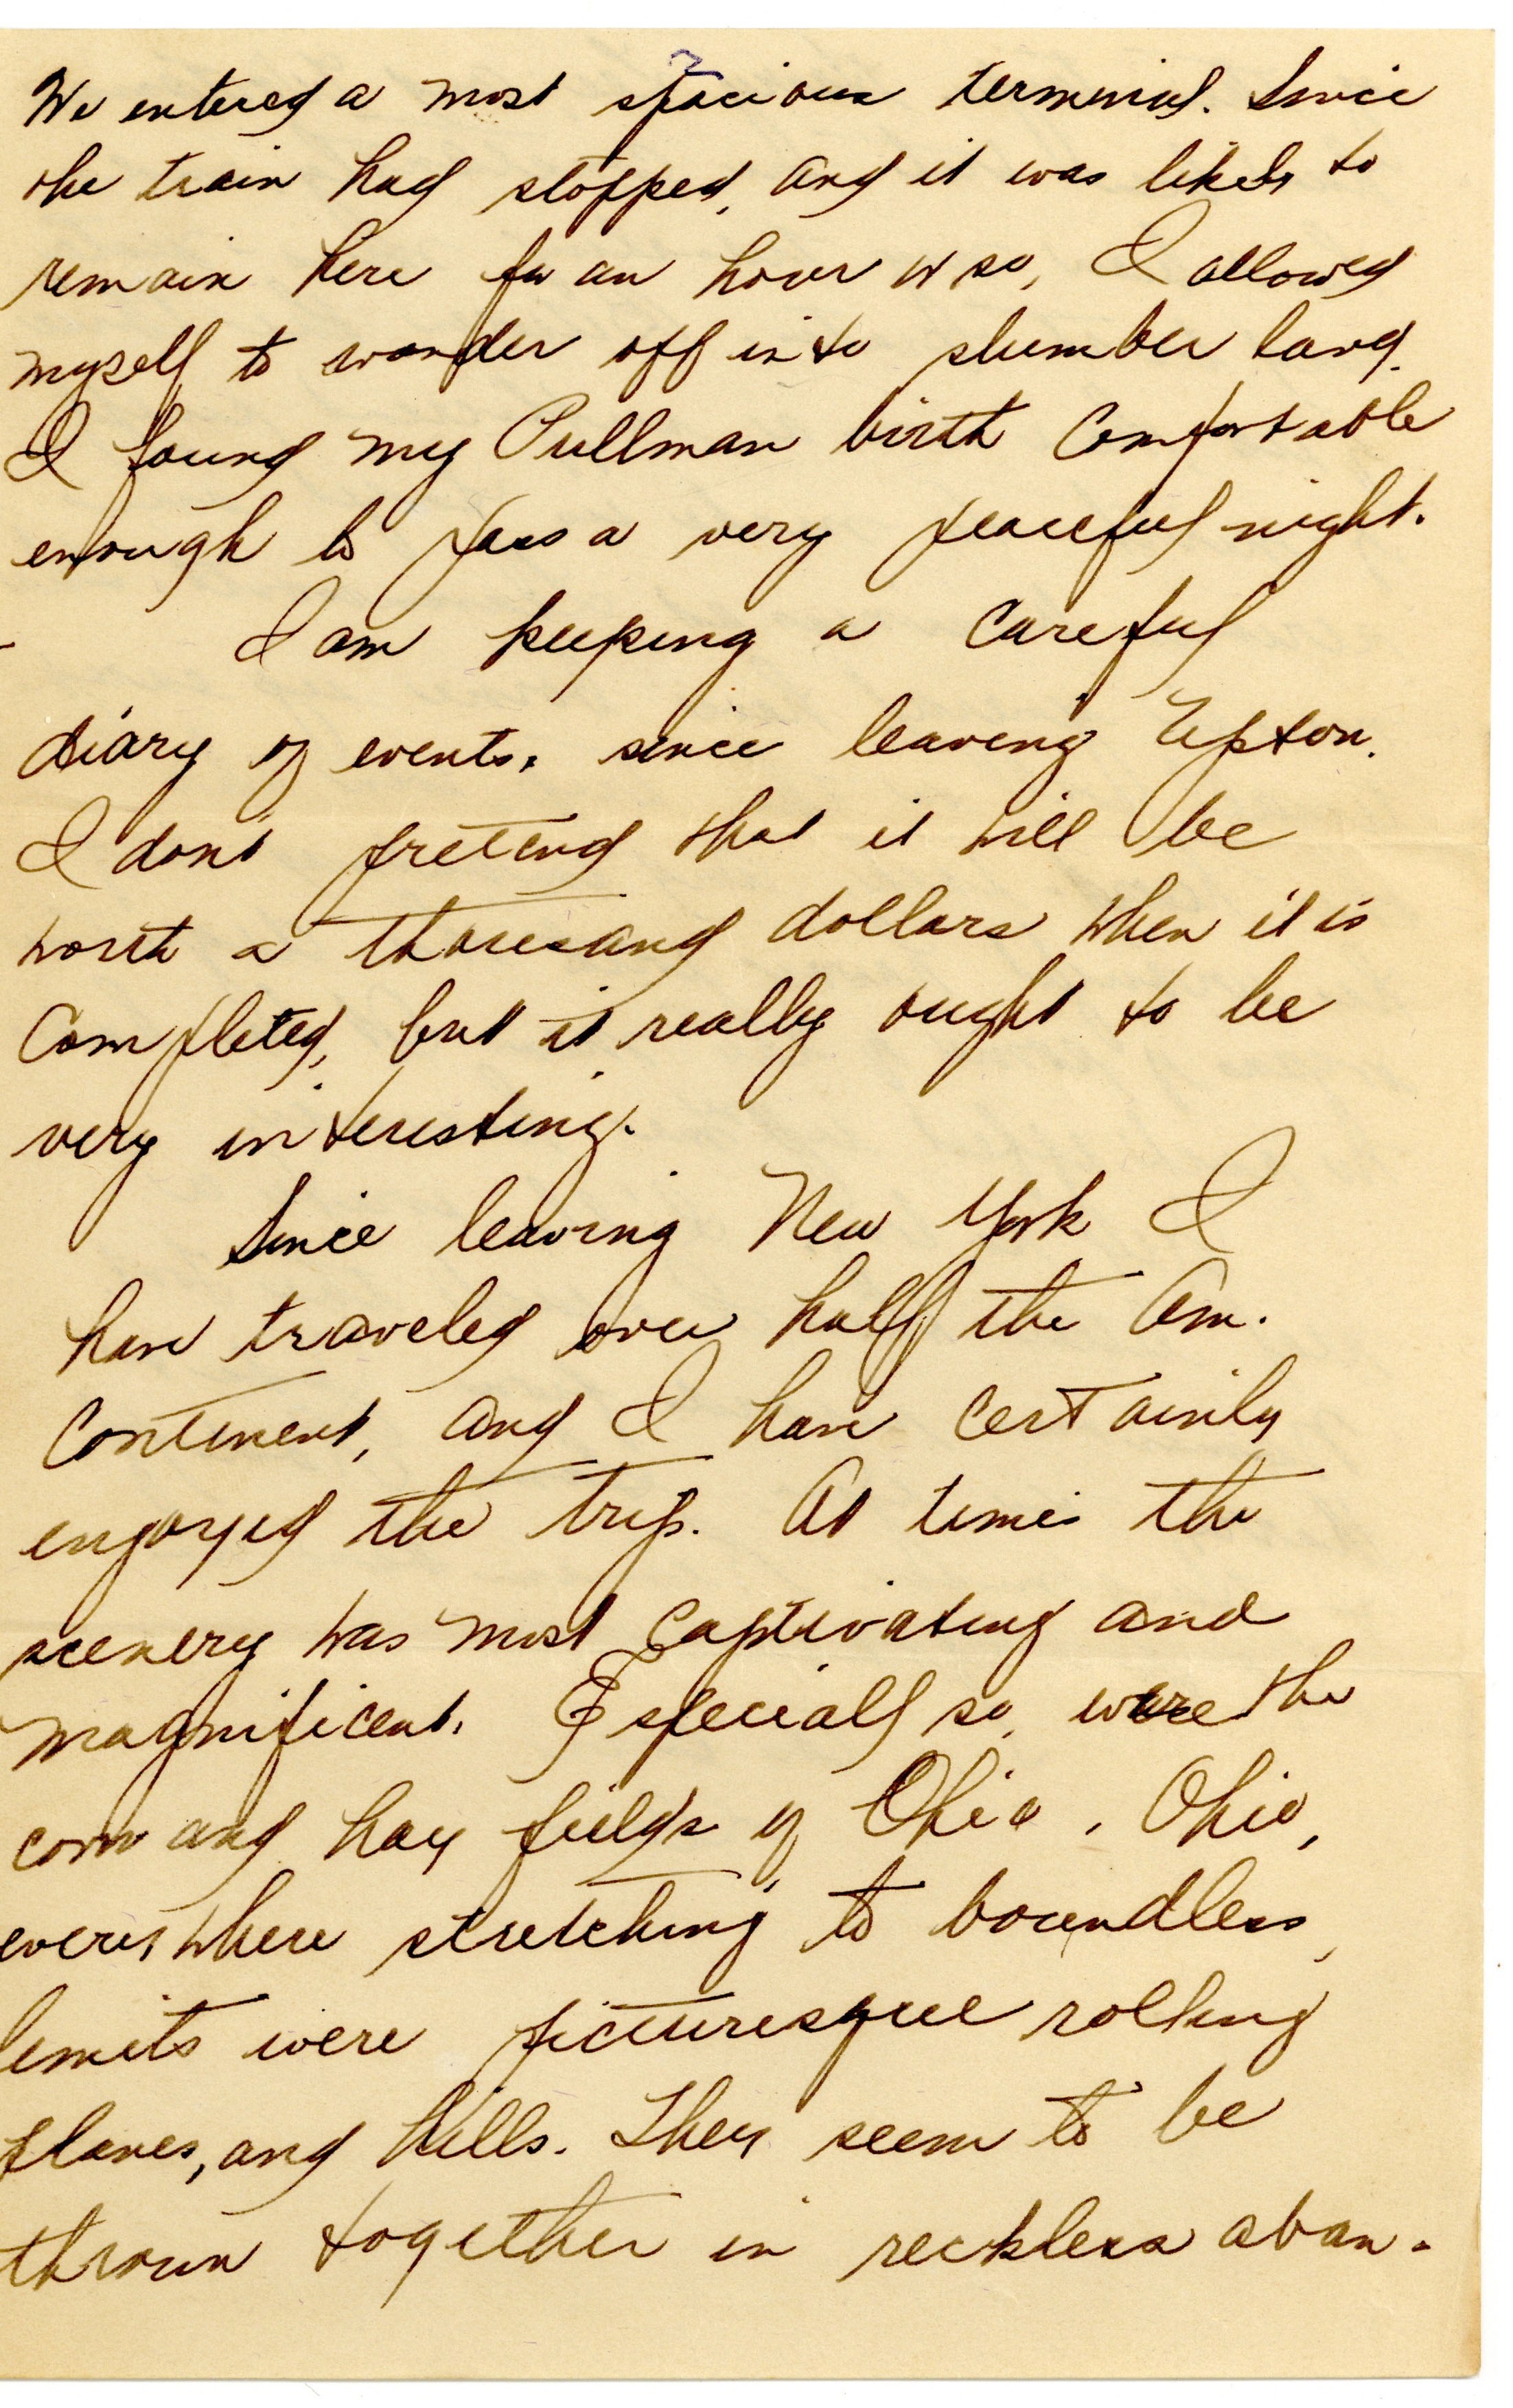 We entered a most spacious terminal. Since
the train had stopped, and it was likely to
remain here for an hour or so, I allowed
myself to wander off into slumber land.
I found my Pullman birth comfortable
enough to pass a very peaceful night.
I am keeping a careful
diary of events, since leaving Upton.
I don't pretend that it will be
worth a thousand dollars when it is
completed, but it really ought to be
very interesting.
Since leaving New York I
have traveled over half the Am.
Continent, and I have certainly
enjoyed the trip. At times the
scenery was most captivating and
magnificent. Especiall so, were the
corn and hay fields of Ohio. Ohio,
everywhere stretching to boundless,
limits were picturesque rolling
planes, and hills. They seem to be
thrown together in reckless aban-